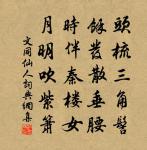 頭梳三角髻
餘發散垂腰
時伴秦樓女
月明吹紫簫
文同仙人詞典網集